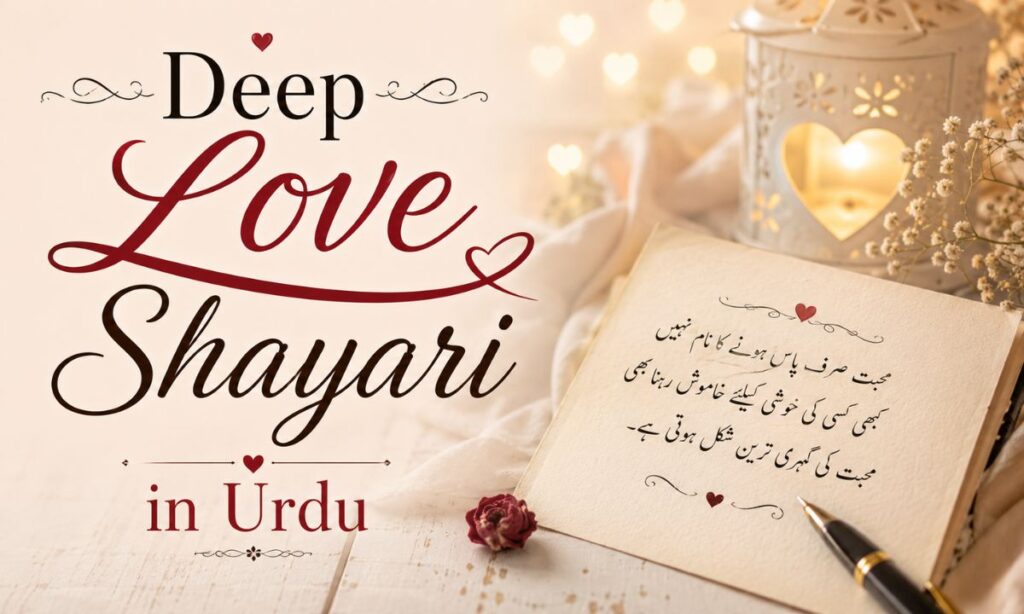 Deep
Love
Shayari
in Urdu
محبت صرف پاس ہونے کا نام نہیں
کبھی کسی کی خوشی کیلئے خاموش رہنا بھی
محبت کی گہری ترین شکل ہوتی ہے۔